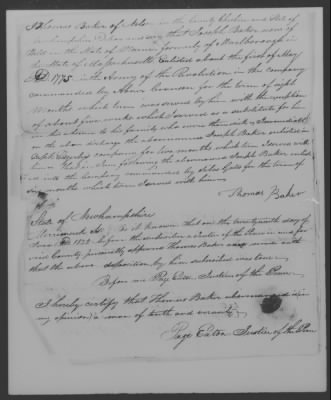 I Thomas Baker of in the County Cheshire and State of
that Joseph Baker now of
in the State of formerly of Marlborough in
the State of Massachusetts Enlisted about the first of May
AD 1775 in the Army of the Revolution in the company
commanded by Abner for the term of eight
months which term was served by him with the exception
of about five weeks which I served as a substitute for him
in his absence to his family who were then sick. Immediately
on the above discharge the abovenamed Joseph Baker enlisted in
Capt company for two months which term I served with
him in the following the abovenamed Joseph Baker enlist-
ed into the company commanded by Silas Gates for the term of
months which term I served with him
Thomas Baker
State of Newhampshire
Be it known that on the twentyninth day of
June AD 1820 before the subscriber a Justice of the Peace in and for
said County personally appeared Thomas Baker and made oath
that the above deposition by him subscribed was true
Before me Page Eaton Justice of the Peace
I hereby certify that Thomas Baker abovenamed is in
my opinion a man of truth and veracity
Page Eaton Justice of the Peace